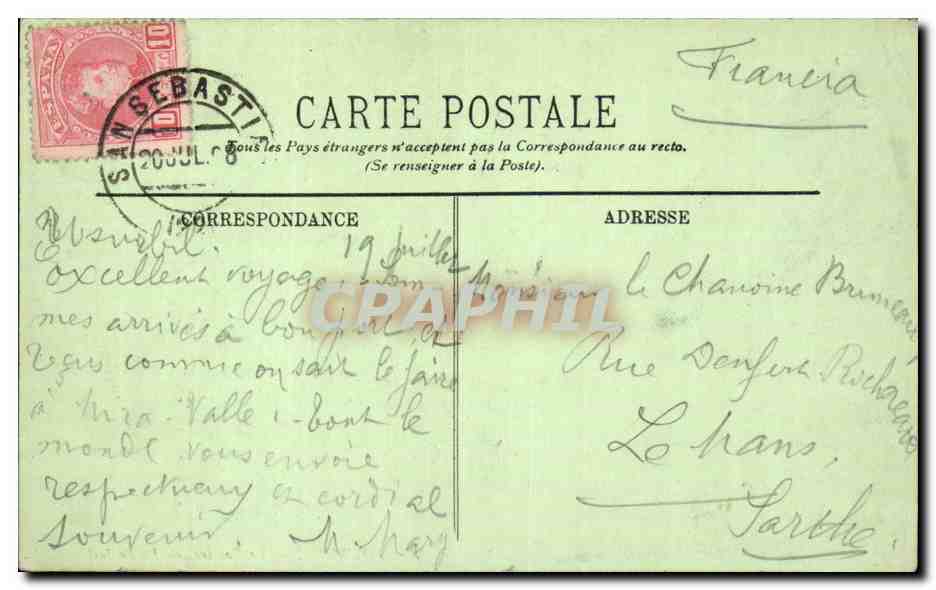 ESPAÑA
10
SAN SEBASTI
20 JUL. 08
Francia
CARTE POSTALE
Tous les Pays étrangers n'acceptent pas la Correspondance au recto.
(Se renseigner à la Poste).
CORRESPONDANCE
Usurbil. 19 Juillet
Excellent voyage. Som
mes arrivés à bon port et
reçus comme on sait le faire
à Mira-Valle : tout le
monde vous envoie
respectueux et cordial
souvenir.
ADRESSE
Monsieur le Chanoine Bruneau
Rue Denfert Rochereau
Le Mans,
Sarthe.
CPAPHIL